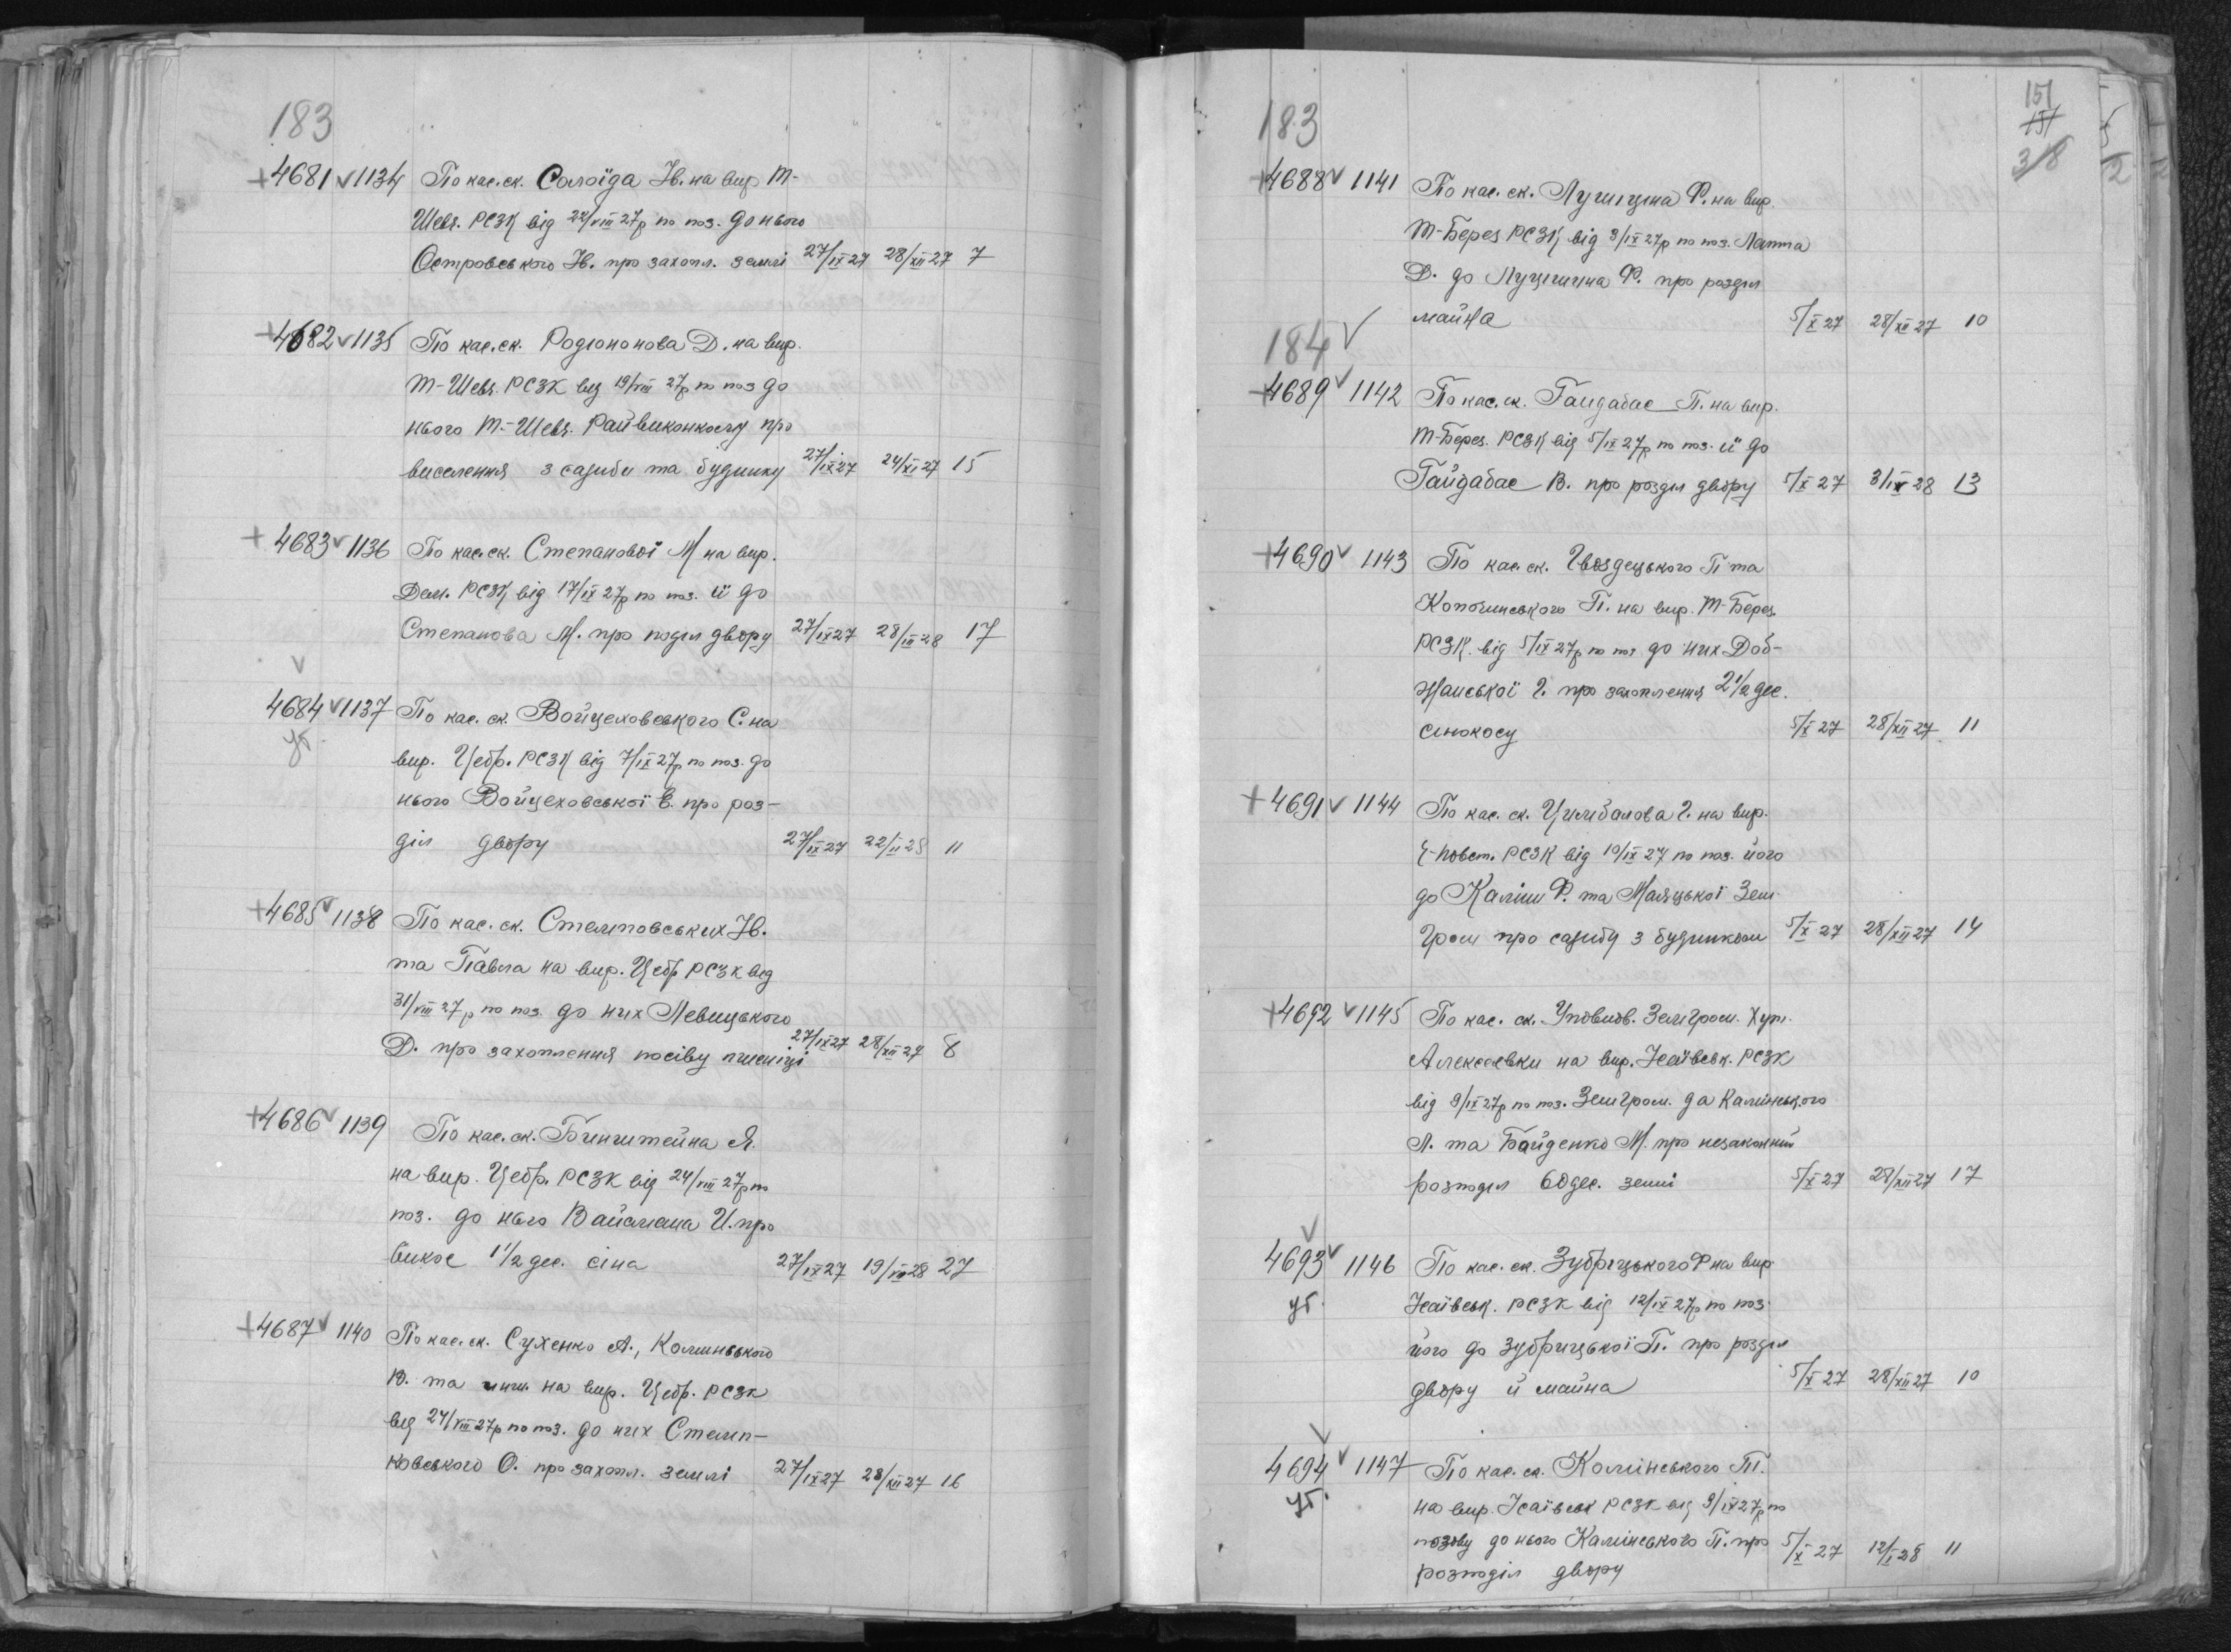 183
+4681 v 1134 По кас. ск. Солоїда Ів. на вир Т-
Шевч. РСЗК від 22/VIII 27р по поз. до нього
Островського Ів. про захопл. землі 27/IX 27 28/XII 27 7
+4682 v 1135 По кас. ск. Родіононова Д. на вир.
Т-Шевч. РСЗК від 19/VIII 27р по поз до
нього Т.-Шевч. Райвиконкому про
виселення з садиби та будинку 27/IX 27 24/XI 27 15
+4683 v 1136 По кас. ск. Степанової М на вир.
Дем. РСЗК від 17/IX 27р по поз. її до
Степанова М. про поділ двору 27/IX 27 28/III 28 17
v
4684 v 1137 По кас. ск. Войцеховського С. на
ут. вир. Цебр. РСЗК від 7/IX 27р по поз. до
нього Войцеховської Е. про роз-
діл двору 27/IX 27 22/II 28 11
+4685 v 1138 По кас. ск. Стемповських Ів.
та Павла на вир. Цебр РСЗК від
31/VIII 27р по поз. до них Левицького
Д. про захоплення посіву пшениці 27/IX 27 28/XII 27 8
+4686 v 1139 По кас. ск. Бинштейна Я.
на вир. Цебр. РСЗК від 24/VIII 27р по
поз. до нього Вайсмана И. про
викос 1 1/2 дес. сіна 27/IX 27 19/VI 28 27
+4687 v 1140 По кас. ск. Сухенко А., Колинського
В. та инш. на вир. Цебр. РСЗК
від 24/VIII 27р по поз. до них Стемп-
ковського О. про захопл. землі 27/IX 27 28/XII 27 16
183
151
151
3/8
+4688 v 1141 По кас. ск. Лущіцина Ф. на вир.
Т-Берез РСЗК від 8/IX 27р по поз. Лапта
Д. до Лущицина Ф. про розділ
майна 5/X 27 28/XII 27 10
184 v
+4689 v 1142 По кас. ск. Гайдабас П. на вир.
Т-Берез. РСЗК від 5/IX 27р по поз. її до
Гайдабас В. про розділ двору 5/X 27 3/IX 28 13
+4690 v 1143 По кас. ск. Гвоздецького П та
Копочинського П. на вир. Т-Берез.
РСЗК. від 5/IX 27р по поз до них Доб-
жанської Г. про захоплення 2 1/2 дес.
сінокосу 5/X 27 28/XII 27 11
+4691 v 1144 По кас. ск. Цимбалова Г. на вир.
Ч-Повст. РСЗК від 10/IX 27 по поз. його
до Каліш Ф. та Маяцької Зем-
Гром про садибу з будинком 5/X 27 28/XII 27 14
+4692 v 1145 По кас. ск. Уповнов. Земгром. Хут.
Алексеевки на вир. Ісаївськ. РСЗК
від 9/IX 27р по поз. Земгром. да Калінського
Л. та Байденко М. про незаконний
розподіл 60 дес. землі 5/X 27 28/XII 27 17
v
4693 v 1146 По кас. ск. Зубріцького Ф на вир
ут. Ісаївськ. РСЗК від 12/IX 27р по поз.
його до Зубрицької П. про розділ
двору й майна 5/X 27 28/XII 27 10
v
4694 v 1147 По кас. ск. Калінського Т.
ут. на вир. Ісаївськ РСЗК від 9/IX 27р по
позову до нього Калінського П. про
розподіл двору 5/X 27 12/I 28 11